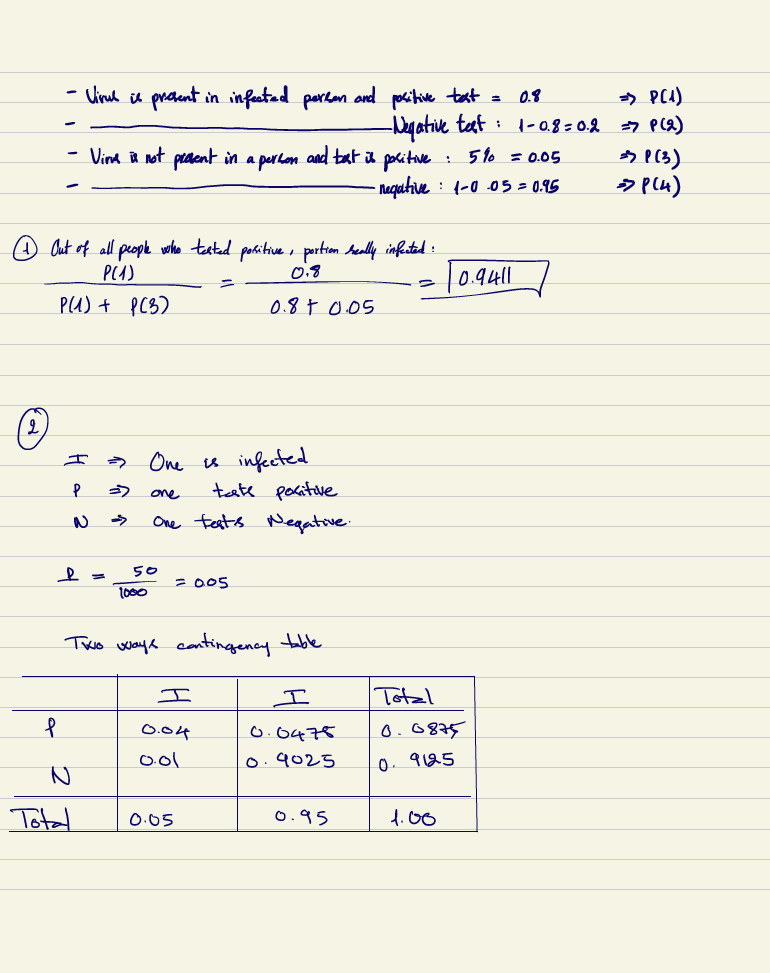 - Virus is present in infected person and positive test = 0.8 => P(1)
- ———— Negative test : 1-0.8=0.2 => P(2)
- Virus is not present in a person and test is positive : 5% = 0.05 => P(3)
- ———— negative : 1-0.05=0.95 => P(4)
① Out of all people who tested positive, portion really infected :
P(1) / P(1) + P(3) = 0.8 / 0.8 + 0.05 = 0.9411
②
I => One is infected
P => one tests positive
N => One tests Negative.
P = 50/1000 = 0.05
Two ways contingency table
I I Total
P 0.04 0.0475 0.0875
N 0.01 0.9025 0.9125
Total 0.05 0.95 1.00